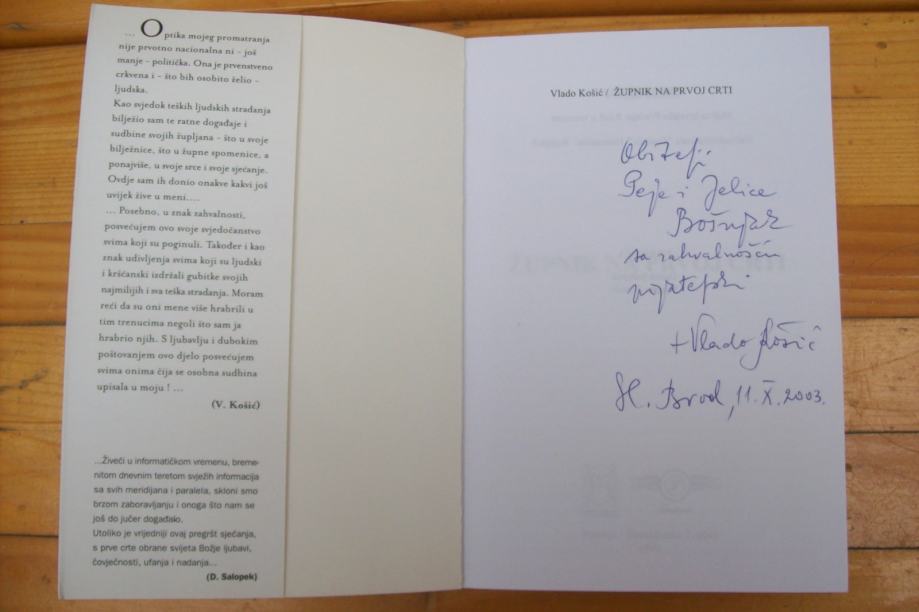 ... Optika mojeg promatranja
nije prvotno nacionalna ni - još
manje - politička. Ona je prvenstveno
crkvena i - što bih osobito želio -
ljudska.
Kao svjedok teških ljudskih stradanja
bilježio sam te ratne događaje i
sudbine svojih župljana - što u svoje
bilježnice, što u župne spomenice, a
ponajviše, u svoje srce i svoje sjećanje.
Ovdje sam ih donio onakve kakvi još
uvijek žive u meni....
... Posebno, u znak zahvalnosti,
posvećujem ovo svoje svjedočanstvo
svima koji su poginuli. Također i kao
znak udivljenja svima koji su ljudski
i kršćanski izdržali gubitke svojih
najmilijih i sva teška stradanja. Moram
reći da su oni mene više hrabrili u
tim trenucima negoli što sam ja
hrabrio njih. S ljubavlju i dubokim
poštovanjem ovo djelo posvećujem
svima onima čija se osobna sudbina
upisala u moju ! ...
(V. Košić)
...Živeći u informatičkom vremenu, breme-
nitom dnevnim teretom svježih informacija
sa svih meridijana i paralela, skloni smo
brzom zaboravljanju i onoga što nam se
još do jučer događalo.
Utoliko je vrijedniji ovaj pregršt sjećanja,
s prve crte obrane svijeta Božje ljubavi,
čovječnosti, ufanja i nadanja...
(D. Salopek)
Vlado Košić / ŽUPNIK NA PRVOJ CRTI
Obitelji
Peje i Jelice
Bošnjak
sa zahvalnošću
prijateljski
+Vlado Košić
Sl. Brod, 11. X. 2003.